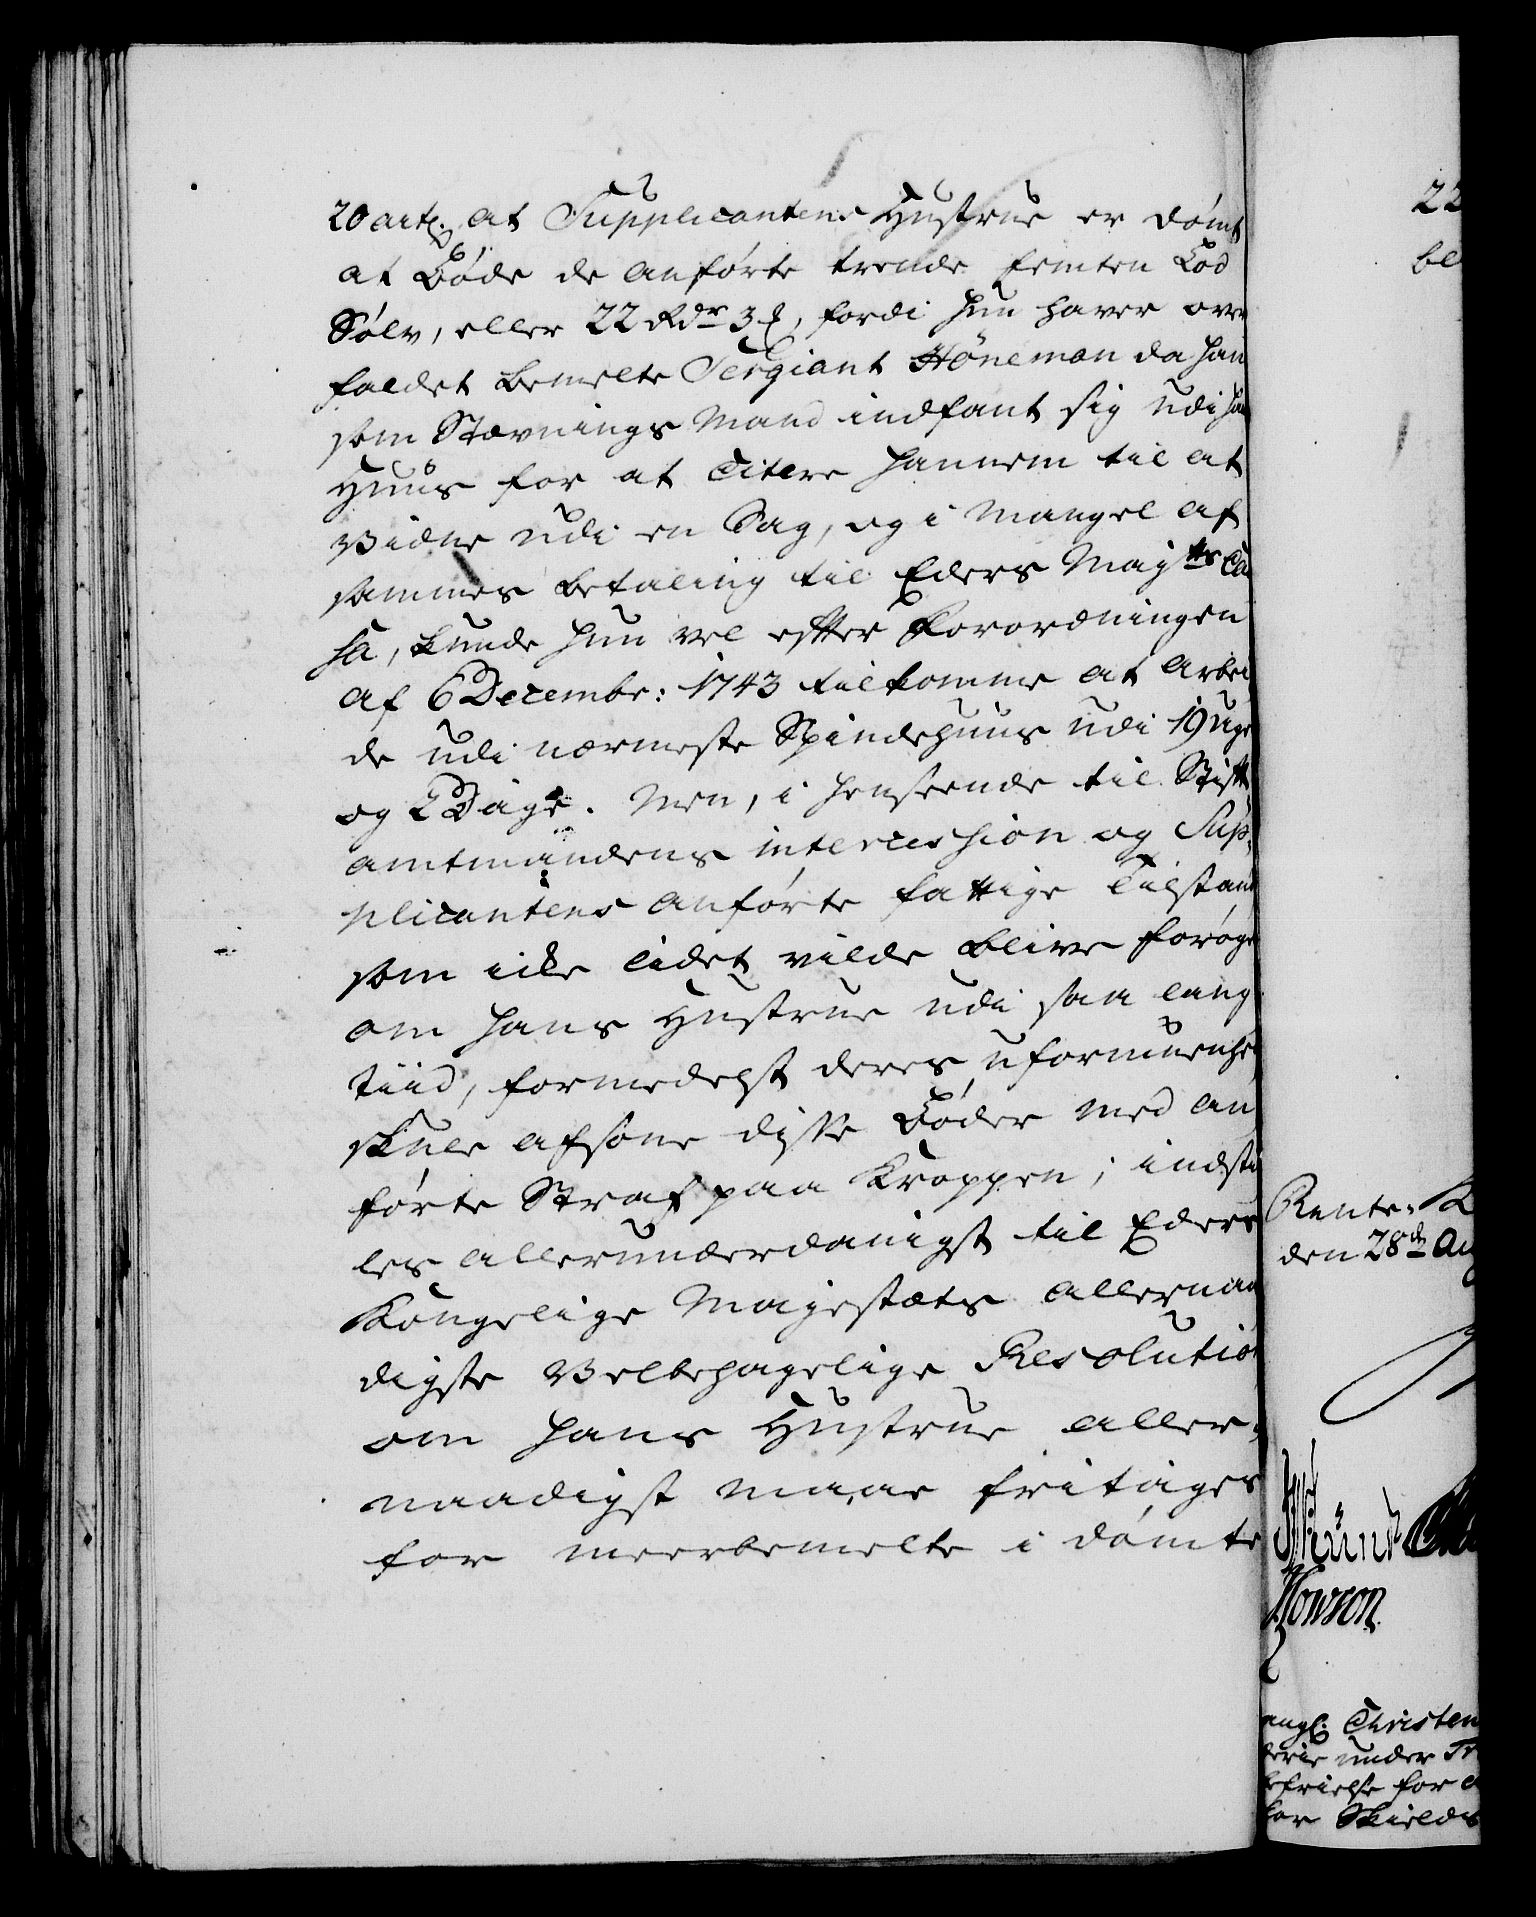 20 art: at Supplicantens Hustrue er dömt
at Böde de anförte trende femten Lod
Sölv, eller 22 Rdr 3 ß, fordi hun haver over
faldet bemelte Sergiant Höneman da han
som Stævnings Mand indfant sig udi hans
Huus for at Citere hannem til at
Vidne udi en Sag, og i Mangel af
sammes betaling til Eders Mayts Cas
sa, kunde hun vel efter Forordningen
af 6 Decembr: 1743 tilkomme at arbei
de udi nærmeste Spindehuus udi 19 Uger
og 2 Dage. Men, i henseende til Stift
amtmandens intercession og Sup,
plicantens anförte fattige Tilstand
som icke lidet vilde blive foröget
om hans Hustrue udi saa lang
tiid, formedelst deres uformuenhed
skule afsone disse Böder med an
förte Straf paa Kroppen; indstil
les allerunderdanigst til Eders
Kongelige Mayestæts allernaa
digste Velbehagelige Resolution
om hans Hustrue aller,
naadigst maae fritages
for meerbemelte i dömte
22
be
Rente-K
den 28de Aug
Howson
angl. Christen
derie under Tr
befrielse for
for Skields